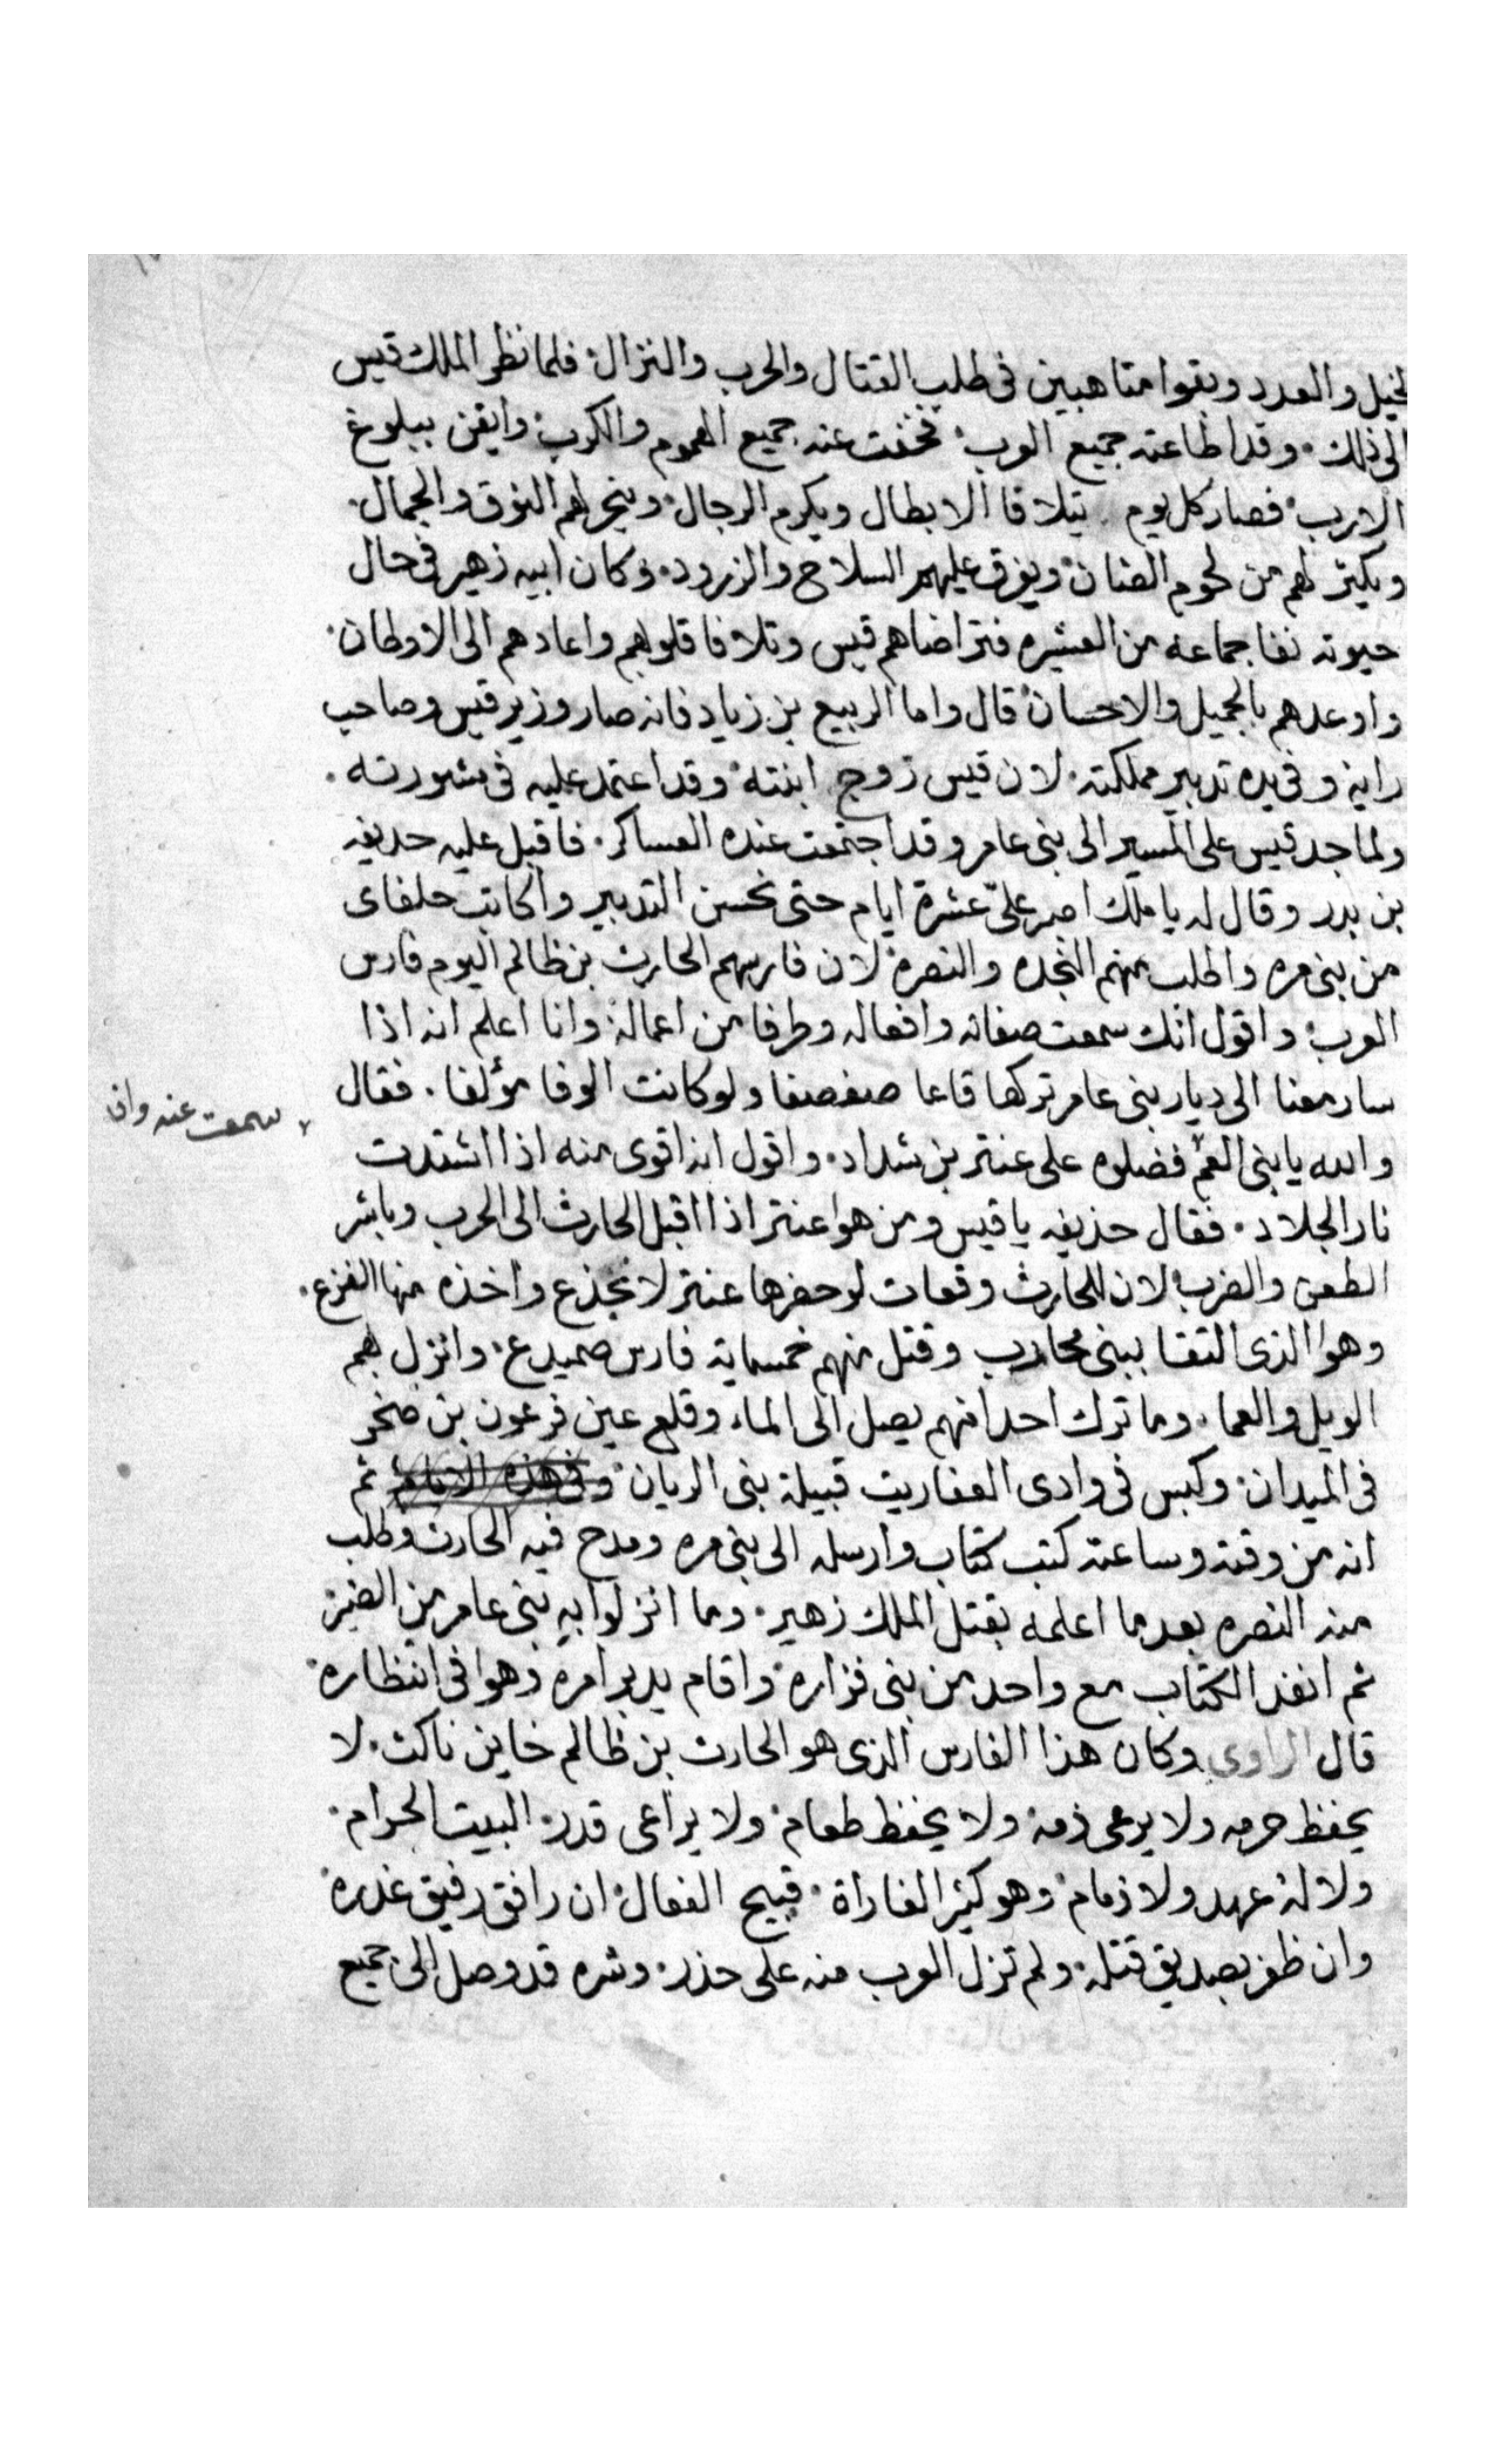 لخيل والعدد وبقوا متاهبين فى طلب القتال والحرب والنزال فلما نظر الملك قيس
الى ذلك وقد اطاعته جميع العرب فخفت عنه جميع الهموم والكرب وايقن ببلوغ
الارب فصار كل يوم يتلاقا الابطال ويكرم الرجال وينحر لهم النوق والجمال
ويكثر لهم من لحوم الضنان ويفرق عليهم السلاح والزرود وكان ابيه زهير فى حال
حيوته نفا جماعه من العشيره فتراضاهم قيس وتلافا قلوبهم واعادهم الى الاوطان
واوعدهم بالجميل والاحسان قال واما الربيع بن زياد فانه صار وزير قيس وصاحب
رايه وفى يده تدبير مملكته لان قيس زوج ابنته وقد اعتمد عليه فى مشورته
ولما جد قيس على المسير الى بنى عامر وقد اجتمعت عنده العساكر فاقبل عليه حديفه
بن بدر وقال له يا ملك اصبر علىّ عشرة ايام حتى نحسن التدبير واكاتب حلفاى
من بنى مره واطلب منهم النجده والنصره لان فارسهم الحارث بن ظالم اليوم فارس
العرب واقول انك سمعت صفاته وافعاله وطرفا من اعماله وانا اعلم انه اذا
سار معنا الى ديار بنى عامر تركها قاعا صفصفا ولو كانت الوفا مؤلفا فقال
سمعت عنه وان
والله يا بنى العم فضلوه على عنتر بن شداد واقول انه اقوى منه اذا اشتدت
نار الجلاد فقال حذيفه يا قيس ومن هوا عنتر اذا اقبل الحارث الى الحرب وباشر
الطعن والضرب لان للحارث وقعات لو حضرها عنتر لانجذع واخذه منها الفزع
وهوا الذى التقا ببنى محارب وقتل منهم خمسماية فارس صميدع وانزل بهم
الويل والعما وما ترك احدا منهم يصل الى الماء وقلع عين فرعون بن صخر
فى الميدان وكبس فى وادى العفاريت قبيلة بنى الريان ثم
انه من وقته وساعته كتب كتاب وارسله الى بنى مره ومدح فيه الحارث وطلب
منه النصره بعد ما اعلمه بقتل الملك زهير وما انزلوا به بنى عامر من الضير
ثم انفذ الكتاب مع واحد من بنى فزاره واقام يدبر امره وهوا فى انتظاره
قال الراوى وكان هذا الفارس الذى هو الحارث بن ظالم خاين ناكث لا
يحفظ حرمه ولا يرعى ذمه ولا يحفظ طعام ولا يراعى قدر البيت الحرام
ولا له عهد ولا ذمام وهو كثير الغاراة قبيح الفعال ان رافق رفيق غدره
وان ظفر بصديق قتله ولم تزل العرب منه على حذر وشره قد وصل الى جميع